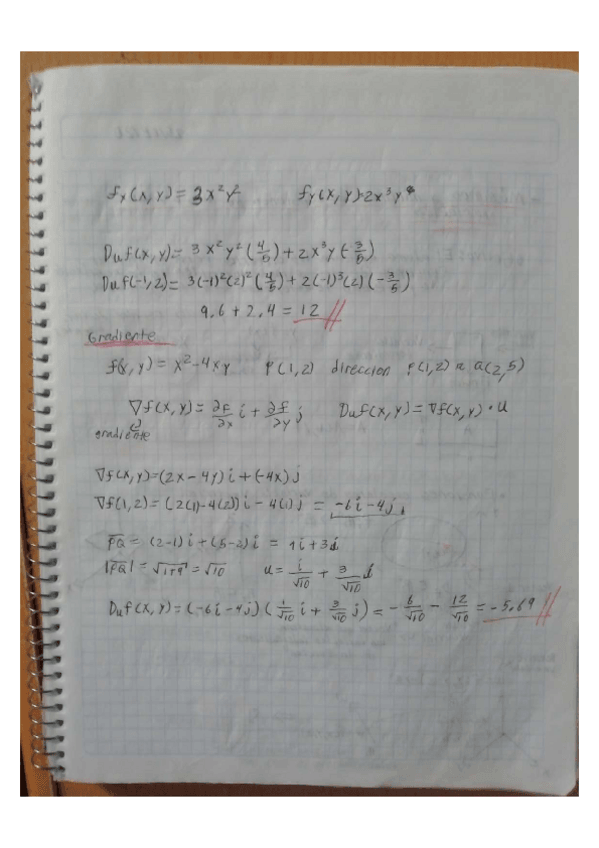 fx(x,y) = 3x²y² fy(x,y)=2x³y
Duf(x,y) = 3x²y²(4/5) + 2x³y(-3/5)
Duf(-1,2) = 3(-1)²(2)²(4/5) + 2(-1)³(2)(-3/5)
9.6 + 2.4 = 12 //
Gradiente
f(x,y) = x²-4xy P(1,2) direccion P(1,2) a Q(2,5)
∇f(x,y) = ∂F/∂x i + ∂f/∂y j Duf(x,y) = ∇f(x,y) · u
gradiente
∇f(x,y) = (2x - 4y)i + (-4x)j
∇f(1,2) = (2(1)-4(2))i - 4(1)j = -6i-4j
PQ = (2-1)i + (5-2)i = 1i+3j
|PQ| = √1+9 = √10 u = i/√10 + 3/√10 j
Duf(x,y) = (-6i-4j)(1/√10 i + 3/√10 j) = -6/√10 - 12/√10 = -5.69 //